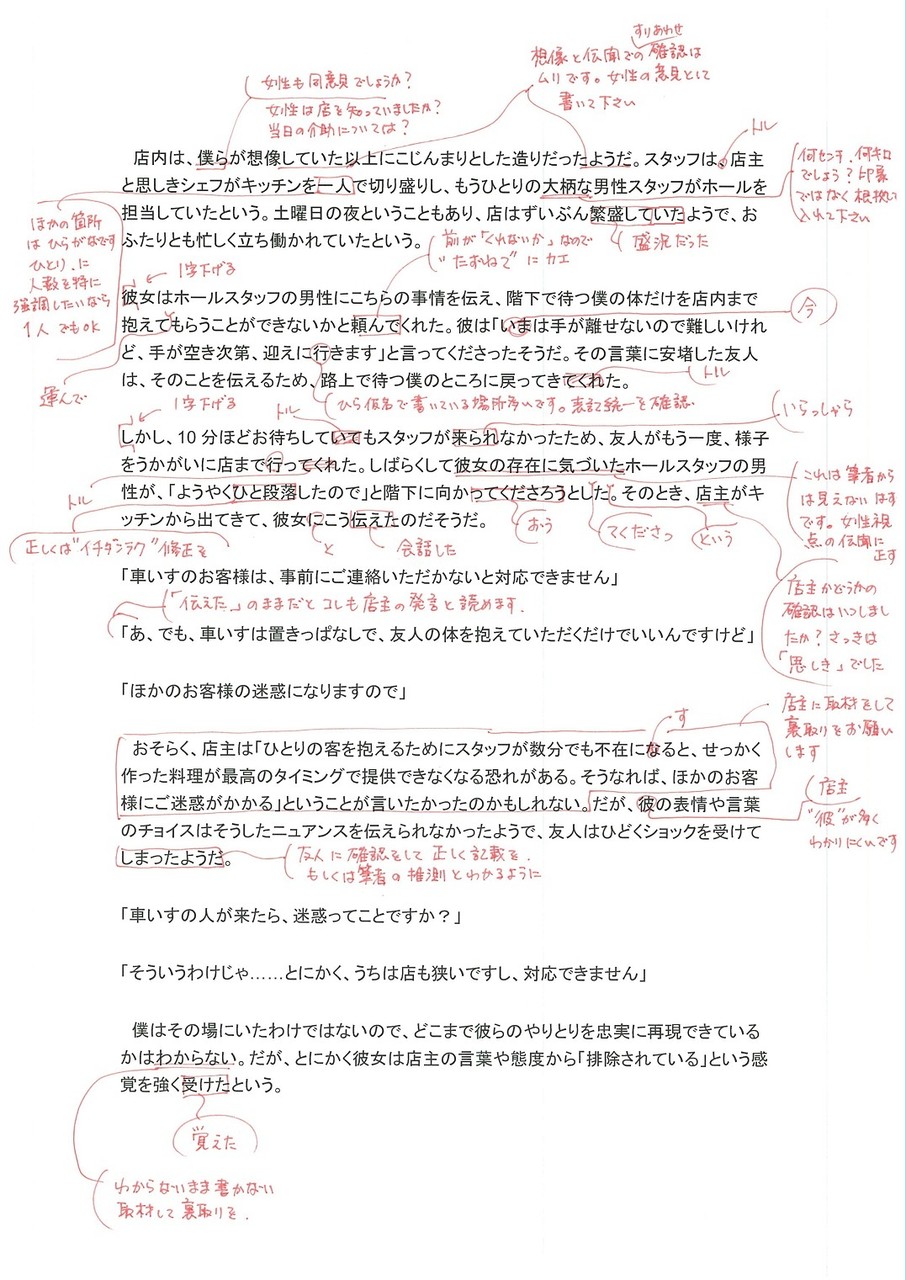 すりあわせ
想像と伝聞での確認は
ムリです。女性の意見として
書いて下さい
女性も同意見でしょうか？
女性は店を知っていましたか？
当日の介助については？
トル
店内は、僕らが想像していた以上にこじんまりとした造りだったようだ。スタッフは、店主
と思しきシェフがキッチンを一人で切り盛りし、もうひとりの大柄な男性スタッフがホールを
担当していたという。土曜日の夜ということもあり、店はずいぶん繁盛していたようで、お
ふたりとも忙しく立ち働かれていたという。
何センチ、何キロ
でしょう？印象
ではなく根拠い
入れて下さい
ほかの箇所
は ひらがなです
ひとり、に
人数を特に
強調したいなら
1人 でもOK
盛況だった
前が「くれないか」なので
"たずねて"にカエ
1字下げる
彼女はホールスタッフの男性にこちらの事情を伝え、階下で待つ僕の体だけを店内まで
抱えてもらうことができないかと頼んでくれた。彼は「いまは手が離せないので難しいけれ
ど、手が空き次第、迎えに行きます」と言ってくださったそうだ。その言葉に安堵した友人
は、そのことを伝えるため、路上で待つ僕のところに戻ってきてくれた。
今
運んで
トル
ひら仮名で書いている場所多いです。表記統一を確認.
1字下げる
トル
いらっしゃら
しかし、10 分ほどお待ちしていてもスタッフが来られなかったため、友人がもう一度、様子
をうかがいに店まで行ってくれた。しばらくして彼女の存在に気づいたホールスタッフの男
性が、「ようやくひと段落したので」と階下に向かってくださろうとした。そのとき、店主がキ
ッチンから出てきて、彼女にこう伝えたのだそうだ。
トル
これは筆者から
は見えないはず
です。女性視
点の伝聞に
正す
正しくは"イチダンラク"修正を
と
会話した
おう
てくださっ
という
「車いすのお客様は、事前にご連絡いただかないと対応できません」
「伝えた」のままだと コレも店主の発言と読めます.
店主かどうかの
確認はいつしまし
たか？さっきは
「思しき」でした
「あ、でも、車いすは置きっぱなしで、友人の体を抱えていただくだけでいいんですけど」
「ほかのお客様の迷惑になりますので」
す
店主に取材をして
裏取りをお願い
します
おそらく、店主は「ひとりの客を抱えるためにスタッフが数分でも不在になると、せっかく
作った料理が最高のタイミングで提供できなくなる恐れがある。そうなれば、ほかのお客
様にご迷惑がかかる」ということが言いたかったのかもしれない。だが、彼の表情や言葉
のチョイスはそうしたニュアンスを伝えられなかったようで、友人はひどくショックを受けて
しまったようだ。
店主
"彼"が多く
わかりにくいです
友人に確認をして 正しく記載を.
もしくは筆者の推測とわかるように
「車いすの人が来たら、迷惑ってことですか？」
「そういうわけじゃ……とにかく、うちは店も狭いですし、対応できません」
僕はその場にいたわけではないので、どこまで彼らのやりとりを忠実に再現できている
かはわからない。だが、とにかく彼女は店主の言葉や態度から「排除されている」という感
覚を強く受けたという。
覚えた
わからないまま書かない
取材して裏取りを.